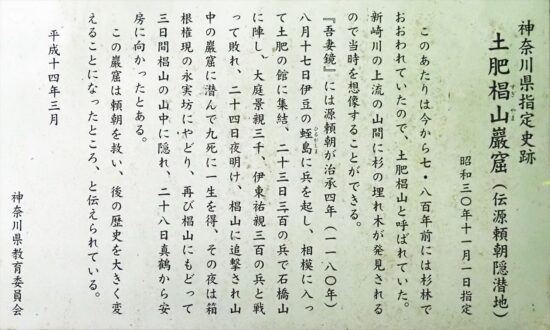 神奈川県指定史跡
土肥椙山巖窟（伝源頼朝隠潜地）
すぎやま
昭和三〇年十一月一日指定
このあたりは今から七・八百年前には杉林で
おおわれていたので、土肥椙山と呼ばれていた。
新崎川の上流の山間に杉の埋れ木が発見される
ので当時を想像することができる。
『吾妻鏡』には源頼朝が治承四年（一一八〇年）
八月十七日伊豆の蛭島に兵を起し、相模に入っ
ひるがしま
て土肥の館に集結、二十三日三百の兵で石橋山
に陣し、大庭景親三千、伊東祐親三百の兵と戦
って敗れ、二十四日夜明け、椙山に追撃され山
中の巖窟に潜んで九死に一生を得、その夜は箱
根権現の永実坊にやどり、再び椙山にもどって
三日間椙山の山中に隠れ、二十八日真鶴から安
房に向かったとある。
この巖窟は頼朝を救い、後の歴史を大きく変
えることになったところ、と伝えられている。
平成十四年三月
神奈川県教育委員会